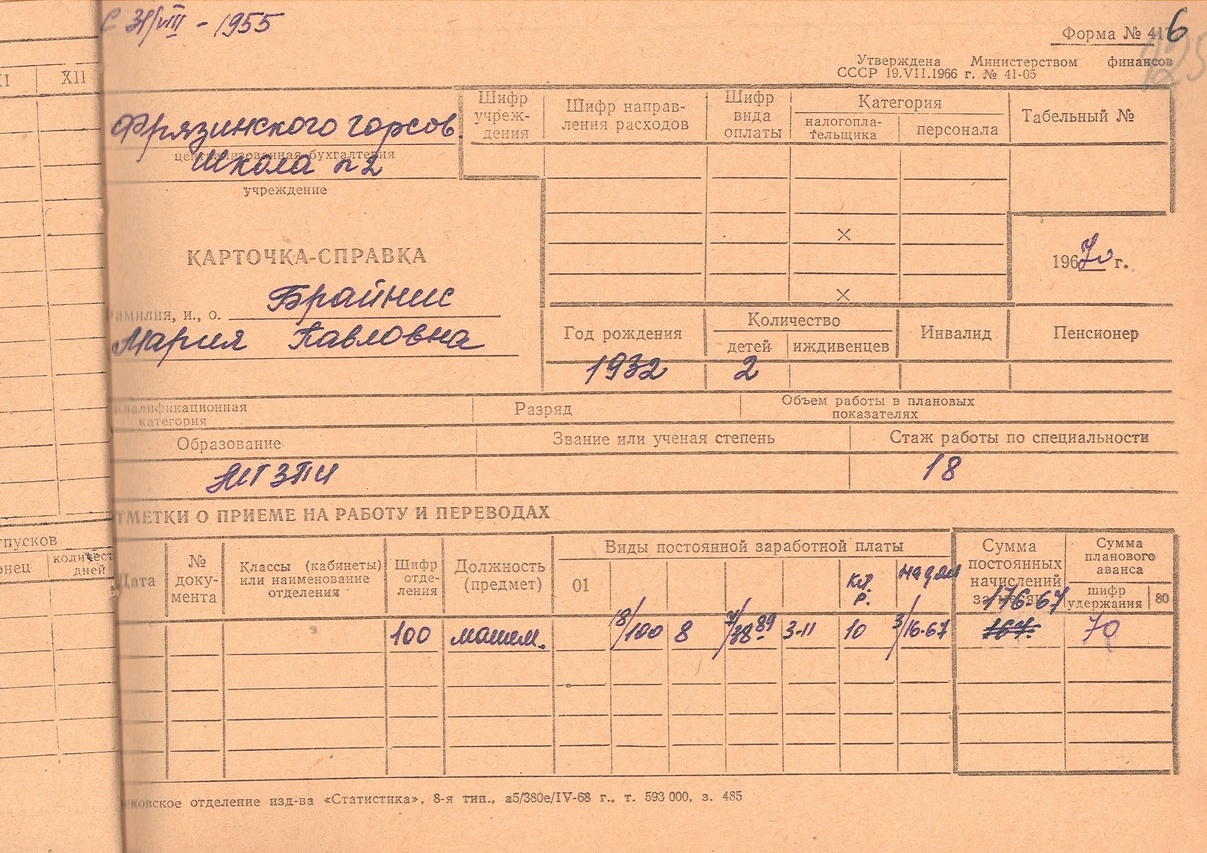 С 31/VIII - 1955
Форма № 417
6
125
Утверждена Министерством финансов
СССР 19.VII.1966 г. № 41-05
XI XII
Фрязинского горсов.
централизованная бухгалтерия
школа №2
учреждение
Шифр учреж-дения
Шифр направ-ления расходов
Шифр вида оплаты
Категория
налогопла-тельщика
персонала
Табельный №
×
×
1970 г.
КАРТОЧКА-СПРАВКА
Фамилия, и., о. Брайнис
Мария Павловна
Год рождения
Количество
детей
иждивенцев
Инвалид
Пенсионер
1932 2
Квалификационная категория
Разряд
Объем работы в плановых показателях
Образование
Звание или ученая степень
Стаж работы по специальности
18
ОТМЕТКИ О ПРИЕМЕ НА РАБОТУ И ПЕРЕВОДАХ
отпусков
конец
количест. дней
Дата
№ доку-мента
Классы (кабинеты) или наименование отделения
Шифр отде-ления
Должность (предмет)
Виды постоянной заработной платы
01
Кл. р.
Надом
Сумма постоянных начислений за месяц
176-67
Сумма планового аванса
шифр удержания
80
100 матем. 18/100 8 7/38-89 3-11 10 3/16-67 167- 70
Московское отделение изд-ва «Статистика», 8-я тип., а5/380е/IV-68 г., т. 593 000, з. 485